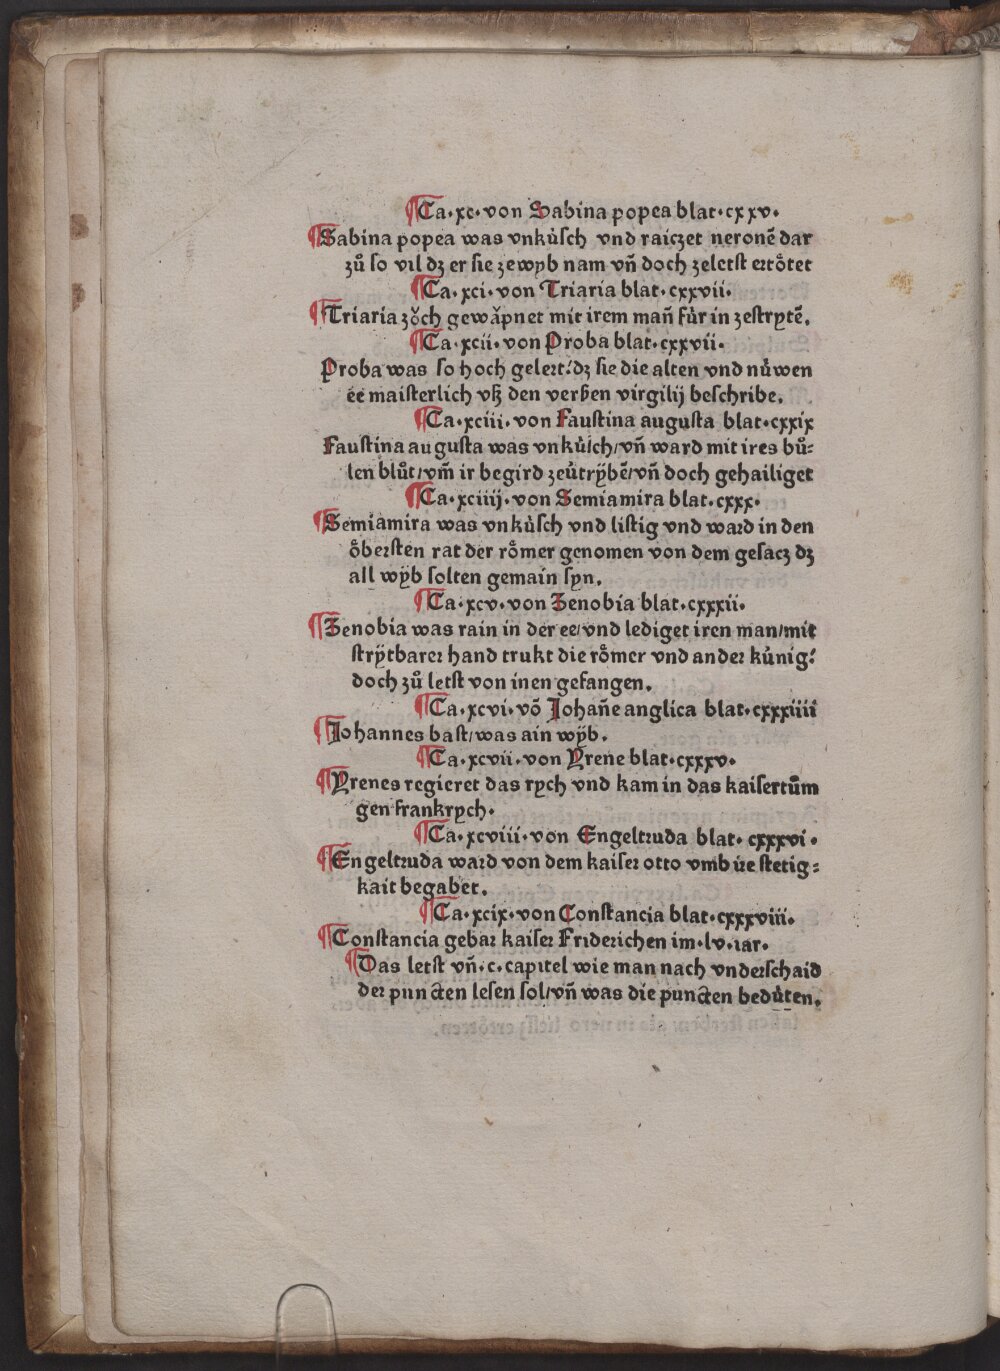 ¶Ca.xc.von Sabina popea blat.cxxv.
¶Sabina popea was vnkuͤsch vnd raiczet neronē dar
zuͦ so vil dz er sie zewyb nam vn̄ doch zeletst ertoͤtet
¶Ca.xci.von Triaria blat.cxxvii.
¶Triaria zoͮch gewaͤpnet mit irem man̄ fuͤr in zestrytē.
¶Ca.xcii.von Proba blat.cxxvii.
Proba was so hoch gelert/dz sie die alten vnd nuͤwen
ee maisterlich vß den verßen virgilij beschribe.
¶Ca.xciii.von Faustina augusta blat.cxxix
Faustina augusta was vnkuͤsch/vn̄ ward mit ires buͦ⸗
len bluͦt/vm̄ ir begird zeuͤtrÿbē/vn̄ doch gehailiget
¶Ca.xciiij.von Semiamira blat.cxxx.
¶Semiamira was vnkuͤsch vnd listig vnd ward in den
oͤbersten rat der roͤmer genomen von dem gesacz dz
all wÿb solten gemain syn.
¶Ca.xcv.von Zenobia blat.cxxxii.
¶Zenobia was rain in der ee/vnd lediget iren man/mit
strÿtbarer hand trukt die roͤmer vnd ander kuͤnig/
doch zuͦ letst von inen gefangen.
¶Ca.xcvi.vō Johan̄e anglica blat.cxxxiiii
¶Johannes bast/was ain wÿb.
¶Ca.xcvii.von Yrene blat.cxxxv.
¶Yrenes regieret das rych vnd kam in das kaisertuͦm
gen frankrych.
¶Ca.xcviii.von Engeltruda blat.cxxxvi.
¶Engeltruda ward von dem kaiser otto vmb ire stetig⸗
kait begabet.
¶Ca.xcix.von Constancia blat.cxxxviii.
¶Constancia gebar kaiser Friderichen im.lv.iar.
¶Das letst vn̄.c.capitel wie man nach vnderschaid
der puncten lesen sol/vn̄ was die puncten beduͤten.